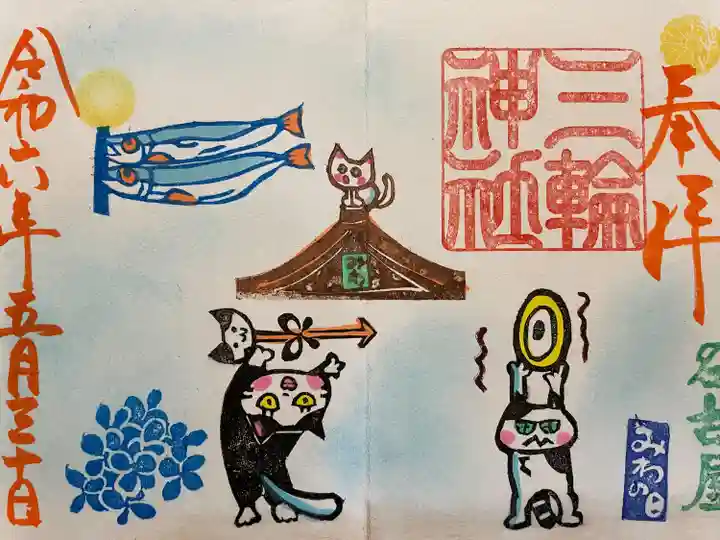 奉拝
三輪
神社
名古屋
みわの日
令和六年五月三十日